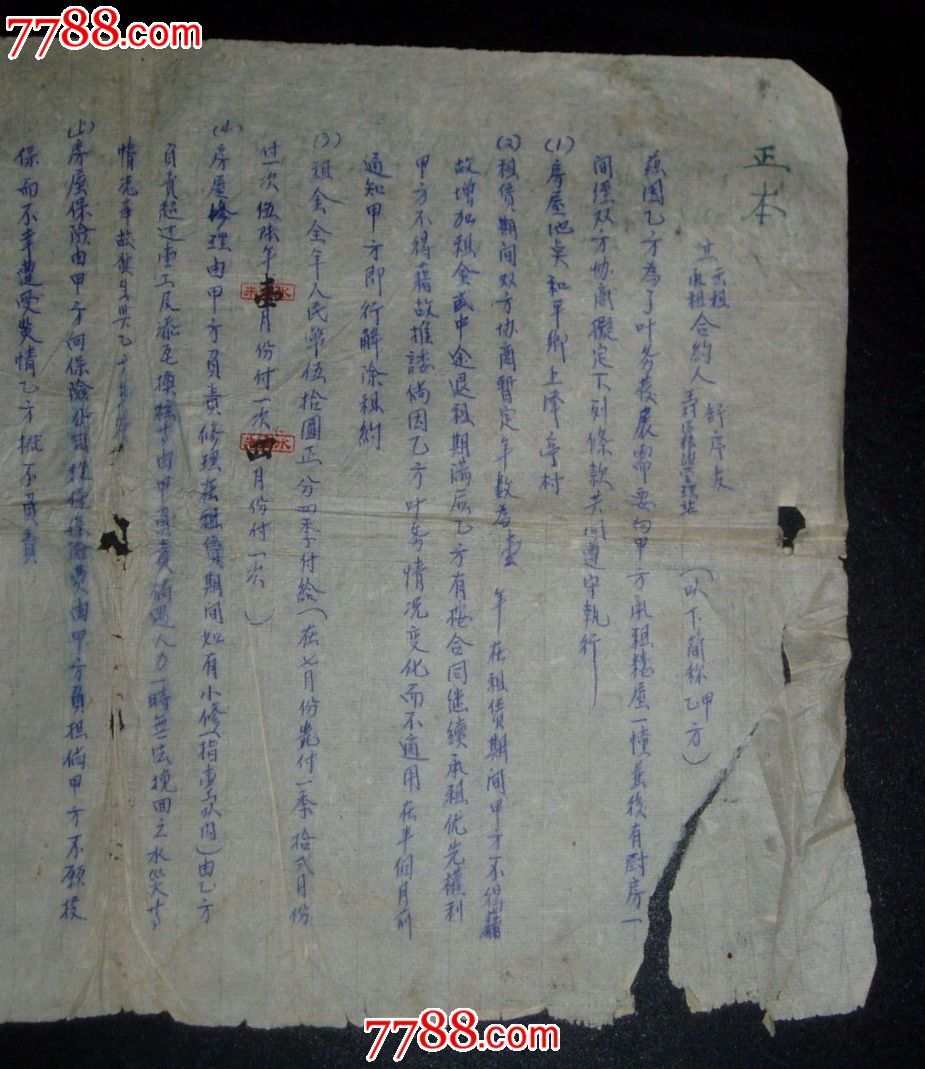 7788.com
7788.com
正本
立 出租 承租 合約人 舒序友 (以下简称 甲 乙 方)
兹因乙方為了叶务發展需要向甲方承租楼屋一幢並後有厨房一
間經双方协商擬定下列條款共同遵守執行
(1) 房屋地奌和平鄉上降亭村
(2) 租賃期间双方协商暫定年数為壹 年在租賃期间甲方不得藉
故增加租金或中途退租期满后乙方有按合同继續承租优先權利
甲方不得藉故推諉倘因乙方叶务情况变化而不適用在半個月前
通知甲方即行解除租約
(3) 租金全年人民幣伍拾圆正分四季付給(在七月份先付一季拾弍月份
付一次伍陆年壹月份付一次四月份付一次)
(4) 房屋修理由甲方負責修理在租賃期间如有小修(指壹工以内)由乙方
負責超过壹工及添瓦換 由甲方負責倘遇人力一時無法挽回之水災
情 乙方
(5) 房屋保險由甲方向保險公司投保保險费由甲方負担倘甲方不願投
保而不幸遭受災情乙方概不負責
7788.com